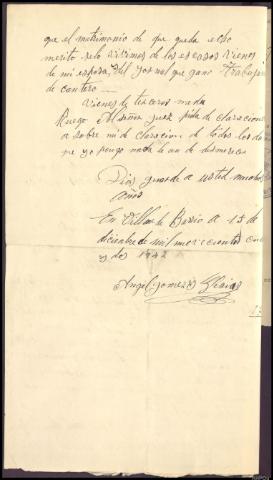 que el matrimonio de que queda echo
merito solo vivimos de los escasos vienes
de mi esposa, del jornal que gano trabajando
de cantero
vienes de terceros nada
Ruego al señor juez pida declaraciones
a sobre mi declaracion de todos los
que yo pongo nada
Dios guarde a usted muchos
años
En Villar de Barrio a 15 de
diciembre de mil novecientos cua
y dos 1942
Angel Gomez